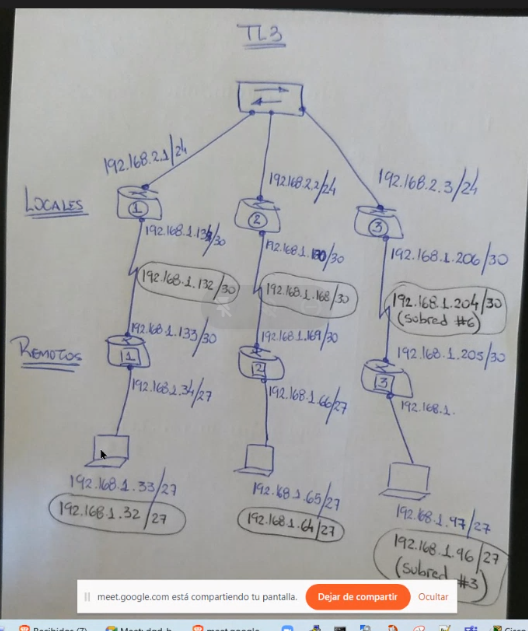 TL3
192.168.2.1/24
192.168.2.2/24
192.168.2.3/24
LOCALES
1
2
3
192.168.1.134/30
192.168.1.170/30
192.168.1.206/30
192.168.1.132/30
192.168.1.168/30
192.168.1.204/30
(subred #6)
REMOTOS
192.168.1.133/30
192.168.1.169/30
192.168.1.205/30
1
2
3
192.168.1.34/27
192.168.1.66/27
192.168.1.
192.168.1.33/27
192.168.1.65/27
192.168.1.97/27
192.168.1.32/27
192.168.1.64/27
192.168.1.96/27
(subred #3)
meet.google.com está compartiendo tu pantalla.
Dejar de compartir
Ocultar
Recibidos (7)
Meet: dqd-b
meet.google
Cisco